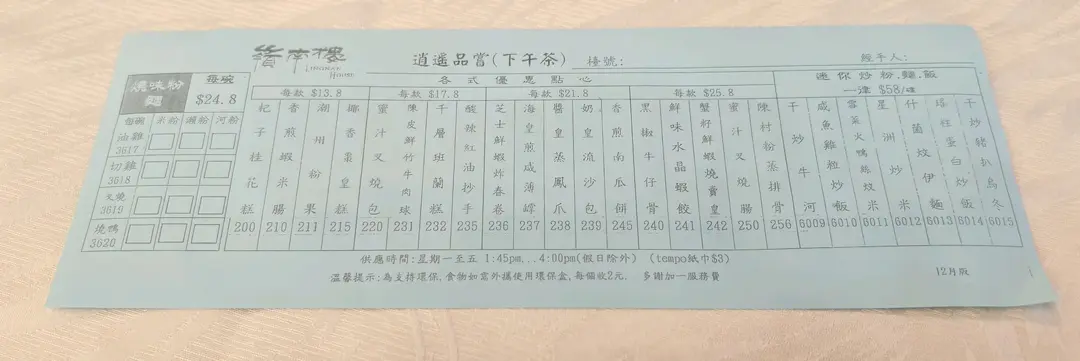 嶺南樓
逍遙品嘗(下午茶) 檯號:
經手人:
燒味粉麵
每碗
$24.8
每碗 米粉 瀨粉 河粉
油雞
3617
切雞
3618
叉燒
3619
燒鴨
3620
各式優惠點心
每款 $13.8
每款 $17.8
每款 $21.8
每款 $25.8
迷你炒粉.麵.飯
一律 $58/碟
杞子桂花糕
200
香煎蝦米腸
210
潮州粉果
211
椰香棗皇糕
215
蜜汁叉燒包
220
陳皮鮮竹牛肉球
231
千層班蘭糕
232
酸辣紅油抄手
235
芝士鮮蝦炸春卷
236
海皇煎咸薄罉
237
醬皇蒸鳳爪
238
奶皇流沙包
239
香煎南瓜餅
245
黑椒牛仔骨
240
鮮味水晶蝦餃
241
蟹籽鮮蝦燒賣皇
242
蜜汁叉燒腸
250
陳村粉蒸排骨
256
干炒牛河
6009
咸魚雞粒炒飯
6010
雪菜火鴨絲炆米
6011
星洲炒米
6012
什菌炆伊麵
6013
瑤柱蛋白炒飯
6014
干炒豬扒烏冬
6015
供應時間:星期一至五 1:45pm...4:00pm(假日除外) (tempo紙巾$3)
溫馨提示:為支持環保,食物如需外攜使用環保盒,每個收2元. 多謝加一服務費
12月版